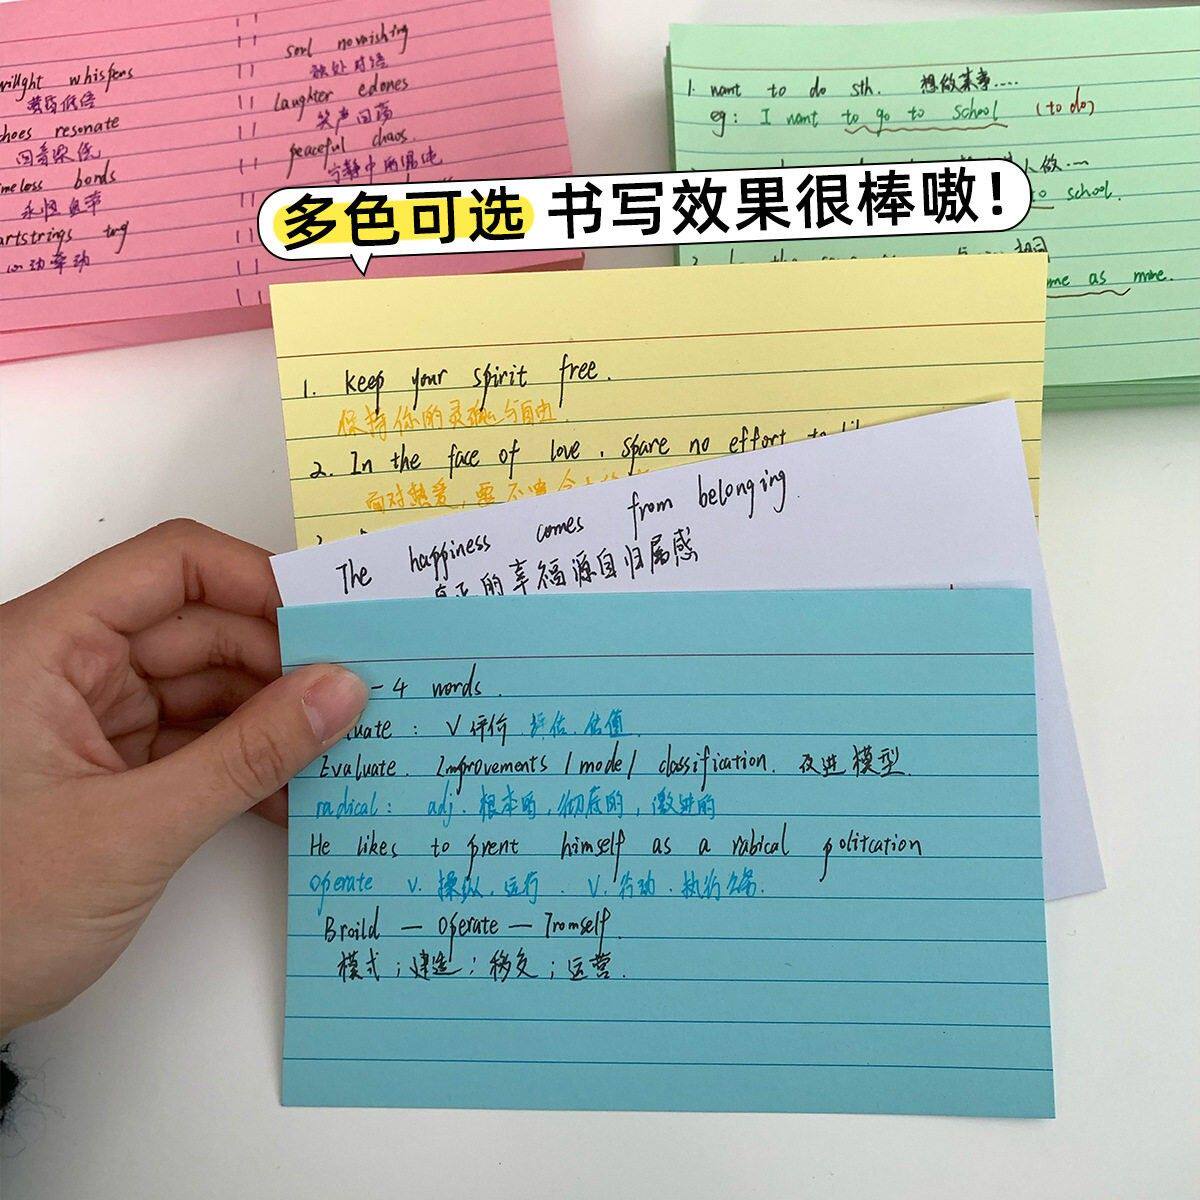 多色可选 书写效果很棒嗷！
whispers
黄昏低语
hoes resonate
bonds
永恒
artstrings tug
心动牵动
soul nourishing
laughter edones
笑声回荡
peaceful chaos
宁静中的混沌
1. want to do sth. 想做某事....
eg: I want to go to school (to do)
人做...
to school.
me as mine.
1. Keep your spirit free.
保持你的灵魂与自由.
2. In the face of love, spare no effort to
面对热爱,要不
The happiness comes from belonging
真正的幸福源自归属感
- 4 words.
luate : V 评价 评估. 估值.
Evaluate. Improvements / model classification. 改进模型.
radical: adj. 根本的,彻底的,激进的
He likes to prent himself as a rabical politcation
operate v. 操纵. 运行. v. 行动. 执行
Broild — Operate — Tromself.
模式;建造;移交;运营.